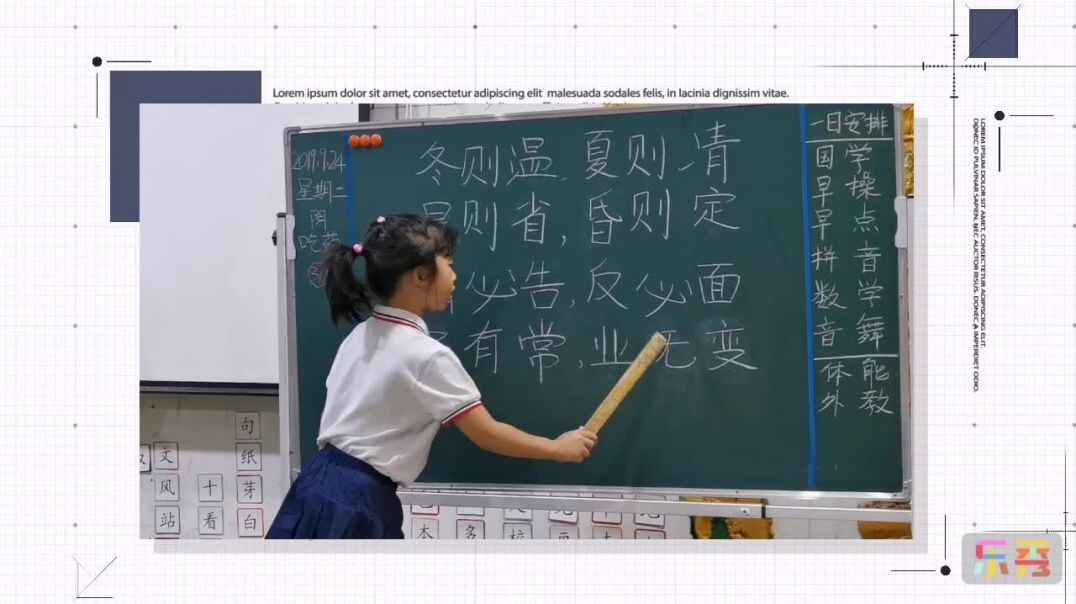 Lorem ipsum dolor sit amet, consectetur adipiscing elit malesuada sodales felis, in lacinia dignissim vitae.
LOREM IPSUM DOLOR SIT AMET, CONSECTETUR ADIPISCING ELIT.
DONEC ID PULVINAR SAPIEN, NEC AUCTOR RISUS. DONEC A IMPERDIET ODIO.
2019.9.24
星期二
阴
冬则温,夏则凊
则省,昏则定
必告,反必面
有常,业无变
一日安排
国学
早操
早点
拼音
数学
音舞
体能
外教
句
文
纸
风
十
芽
站
看
白
本
多
乐秀